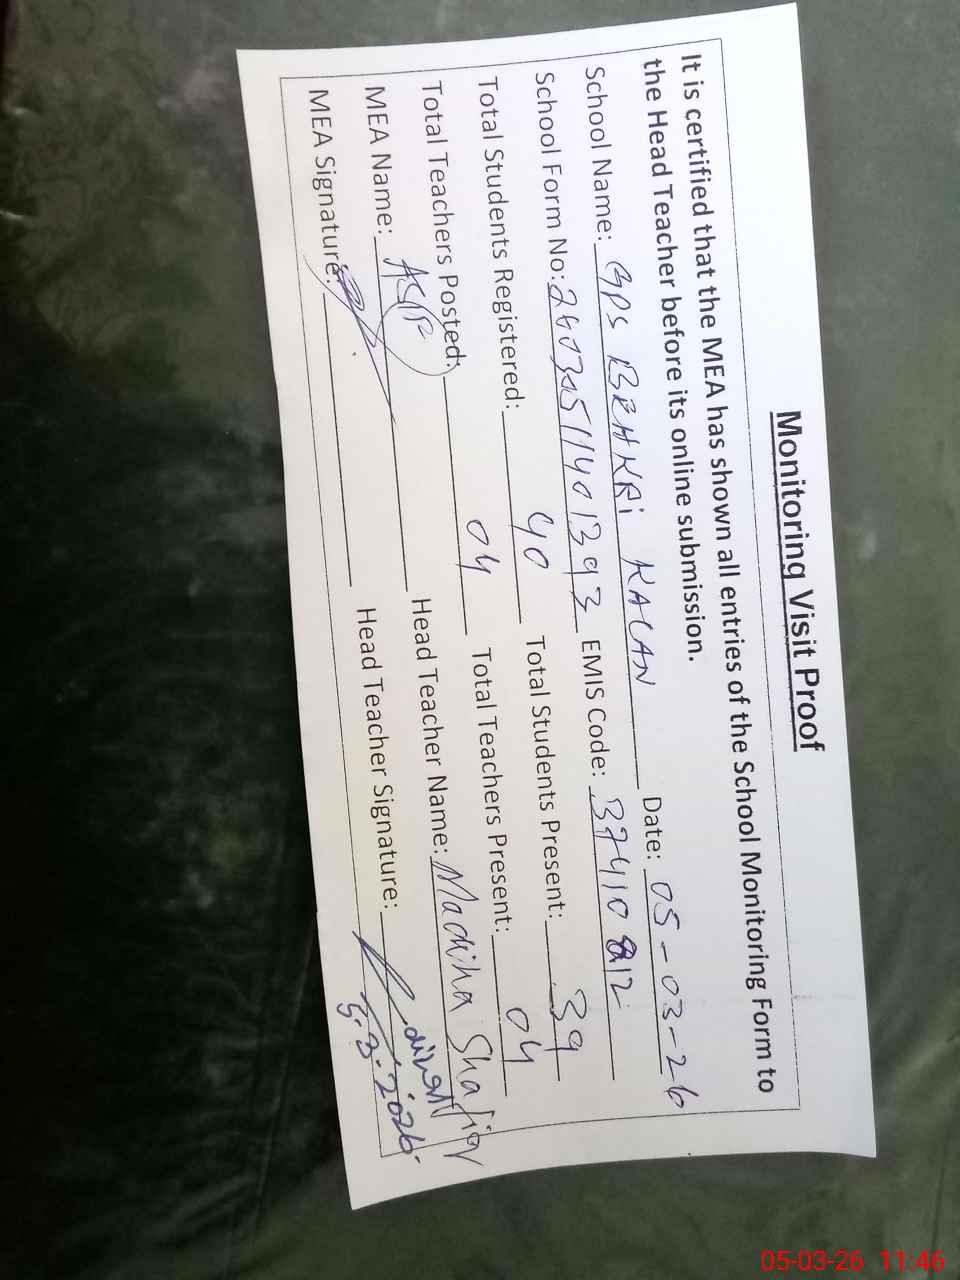 Monitoring Visit Proof
It is certified that the MEA has shown all entries of the School Monitoring Form to
the Head Teacher before its online submission.
School Name: GPS BEHKRi KALAN Date: 05-03-26
School Form No: EMIS Code: 37410
Total Students Registered: 40 Total Students Present: 39
Total Teachers Posted: 04 Total Teachers Present: 04
MEA Name: ASIF Head Teacher Name: Madiha Shafiq
MEA Signature: Head Teacher Signature:
5.3.2026.
05-03-26 11:46